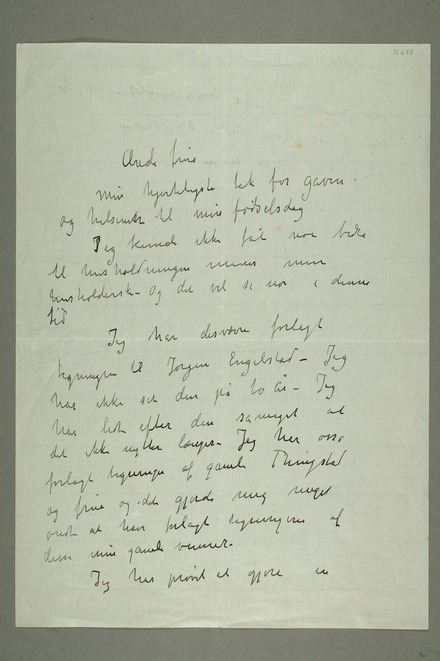 N 685
Ærede frue
min hjerteligste tak for gaven.
og hilsenen til min fødselsdag
Jeg kunde ikke fåt noe bedre
til husholdningen mener min
husholderske og det vil si noe i denne
tid
Jeg har desværre forlagt
tegningen til Jørgen Engelstad – Jeg
har ikke set den på to år – Jeg
har lett efter den så meget at
det ikke nytter længer – Jeg har osså
forlagt tegninger af gamle Thingstad
og frue og det gjorde mig meget
ondt at have forlagt tegningerne af
disse mine gamle venner.
Jeg har prøvd at gjøre en